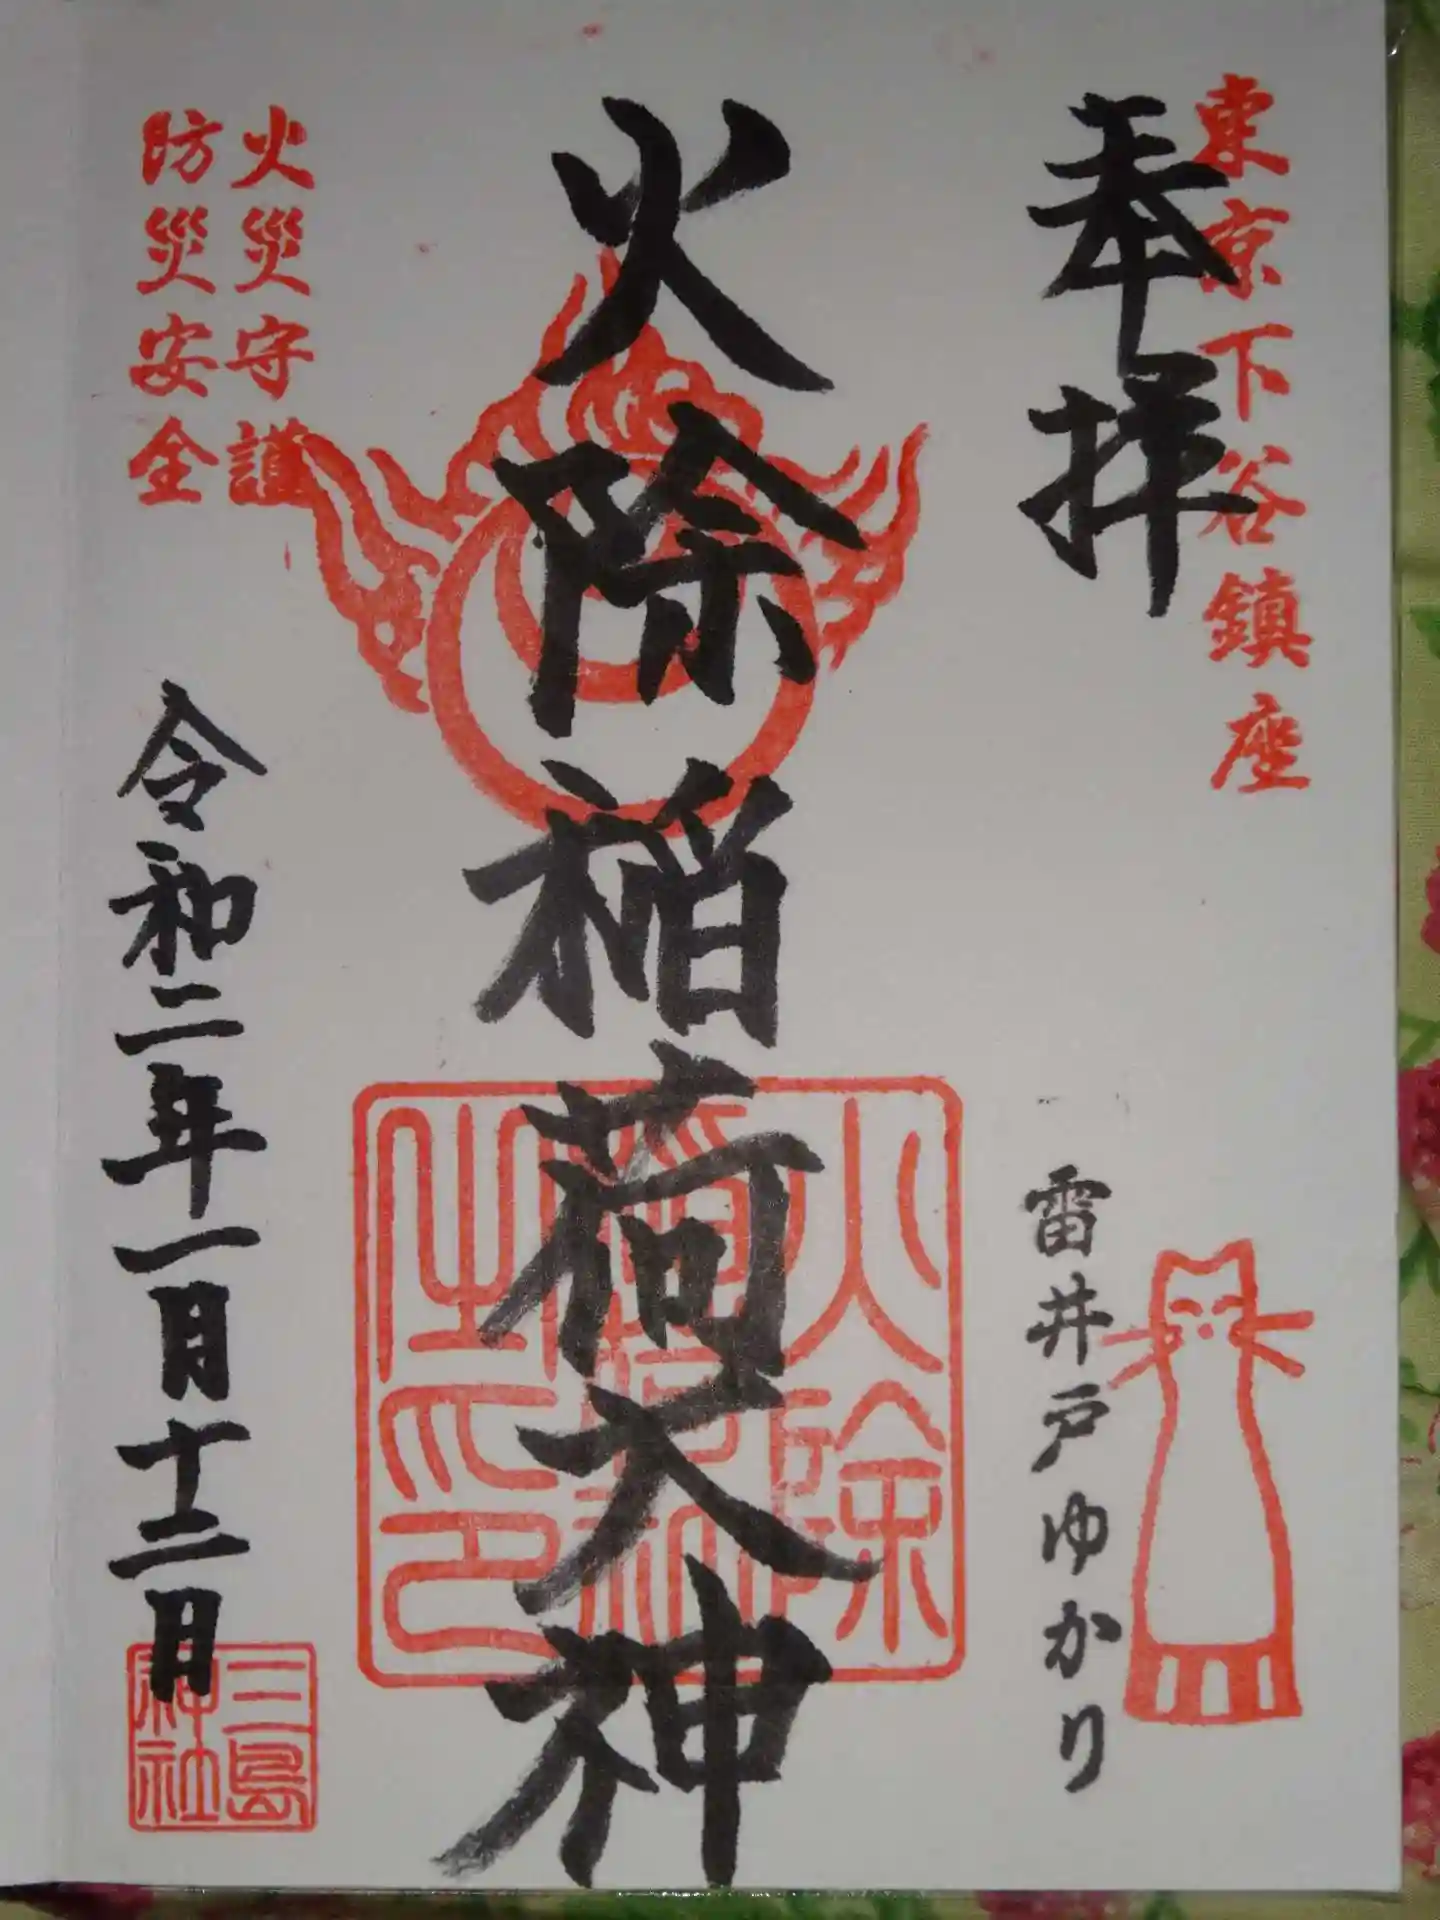 東京下谷鎮座
奉拝
雷井戸ゆかり
火除稲荷大神
火除
稲荷神
之印
火災守護
防災安全
令和二年一月十二日
三島
神社